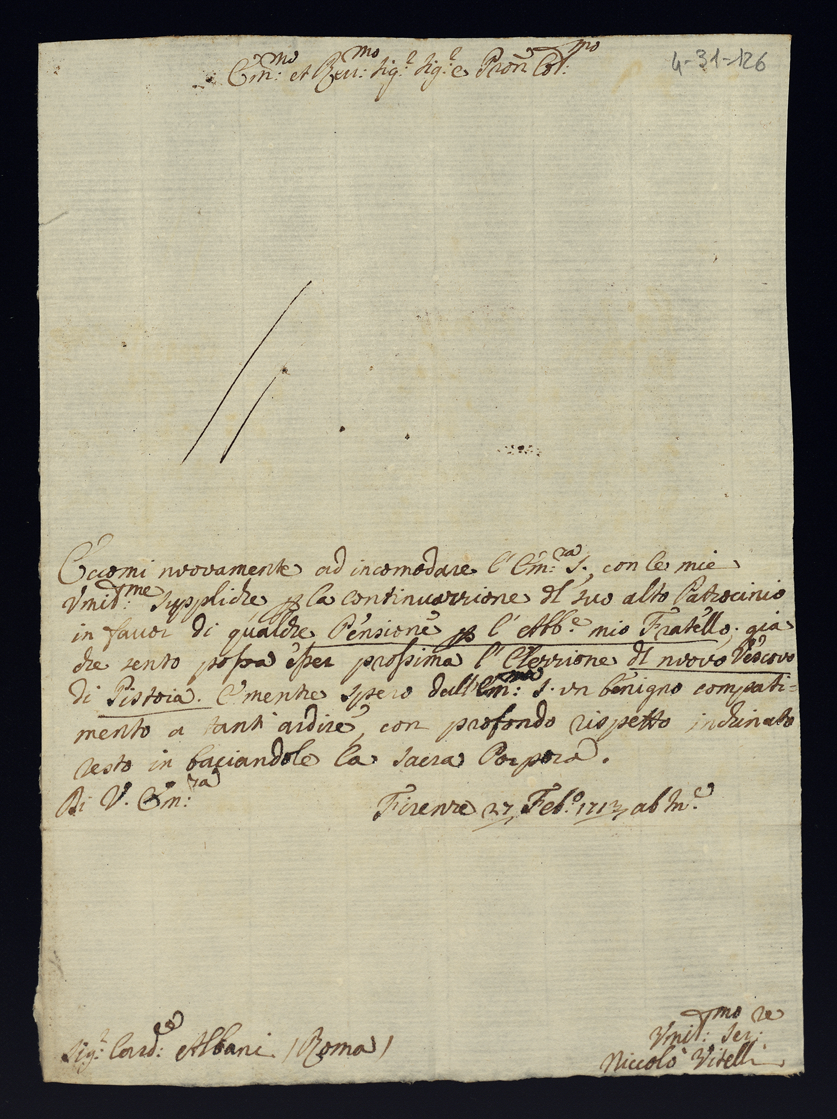 Em:mo et Rev:mo Sig:r Sig:re Pron Col:mo
4-31-126
Eccomi nuovamente ad incomodare l'Em:za S., con le mie
Vmil:me suppliche p la continuazzione dl suo alto Patrocinio
in favor di qualche Pensione p l'Abb:e mio Fratello; gia
che sento possa esser prossima l'Elezzione dl nuovo Vescovo
di Pistoia. E mentre spero dall'Em:ma S. un benigno compati=
mento a tant'ardire, con profondo rispetto inchinato
resto in baciandole la sacra Porpora.
Di V. Em:za
Firenze 27 Feb:o 1713 ab In:e
Vmil:mo Ser:re
Sig:r Card:e Albani (Roma)
Niccolò Vitelli